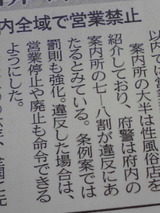 内全域で営業禁止
以内で
案内所の大半は性風俗店を
紹介しており、府警は府内の
案内所の七－八割が違反にあ
たるとみている。条例案では
罰則も強化。違反した場合は、
営業停止や廃止も命令できる
ようにした。